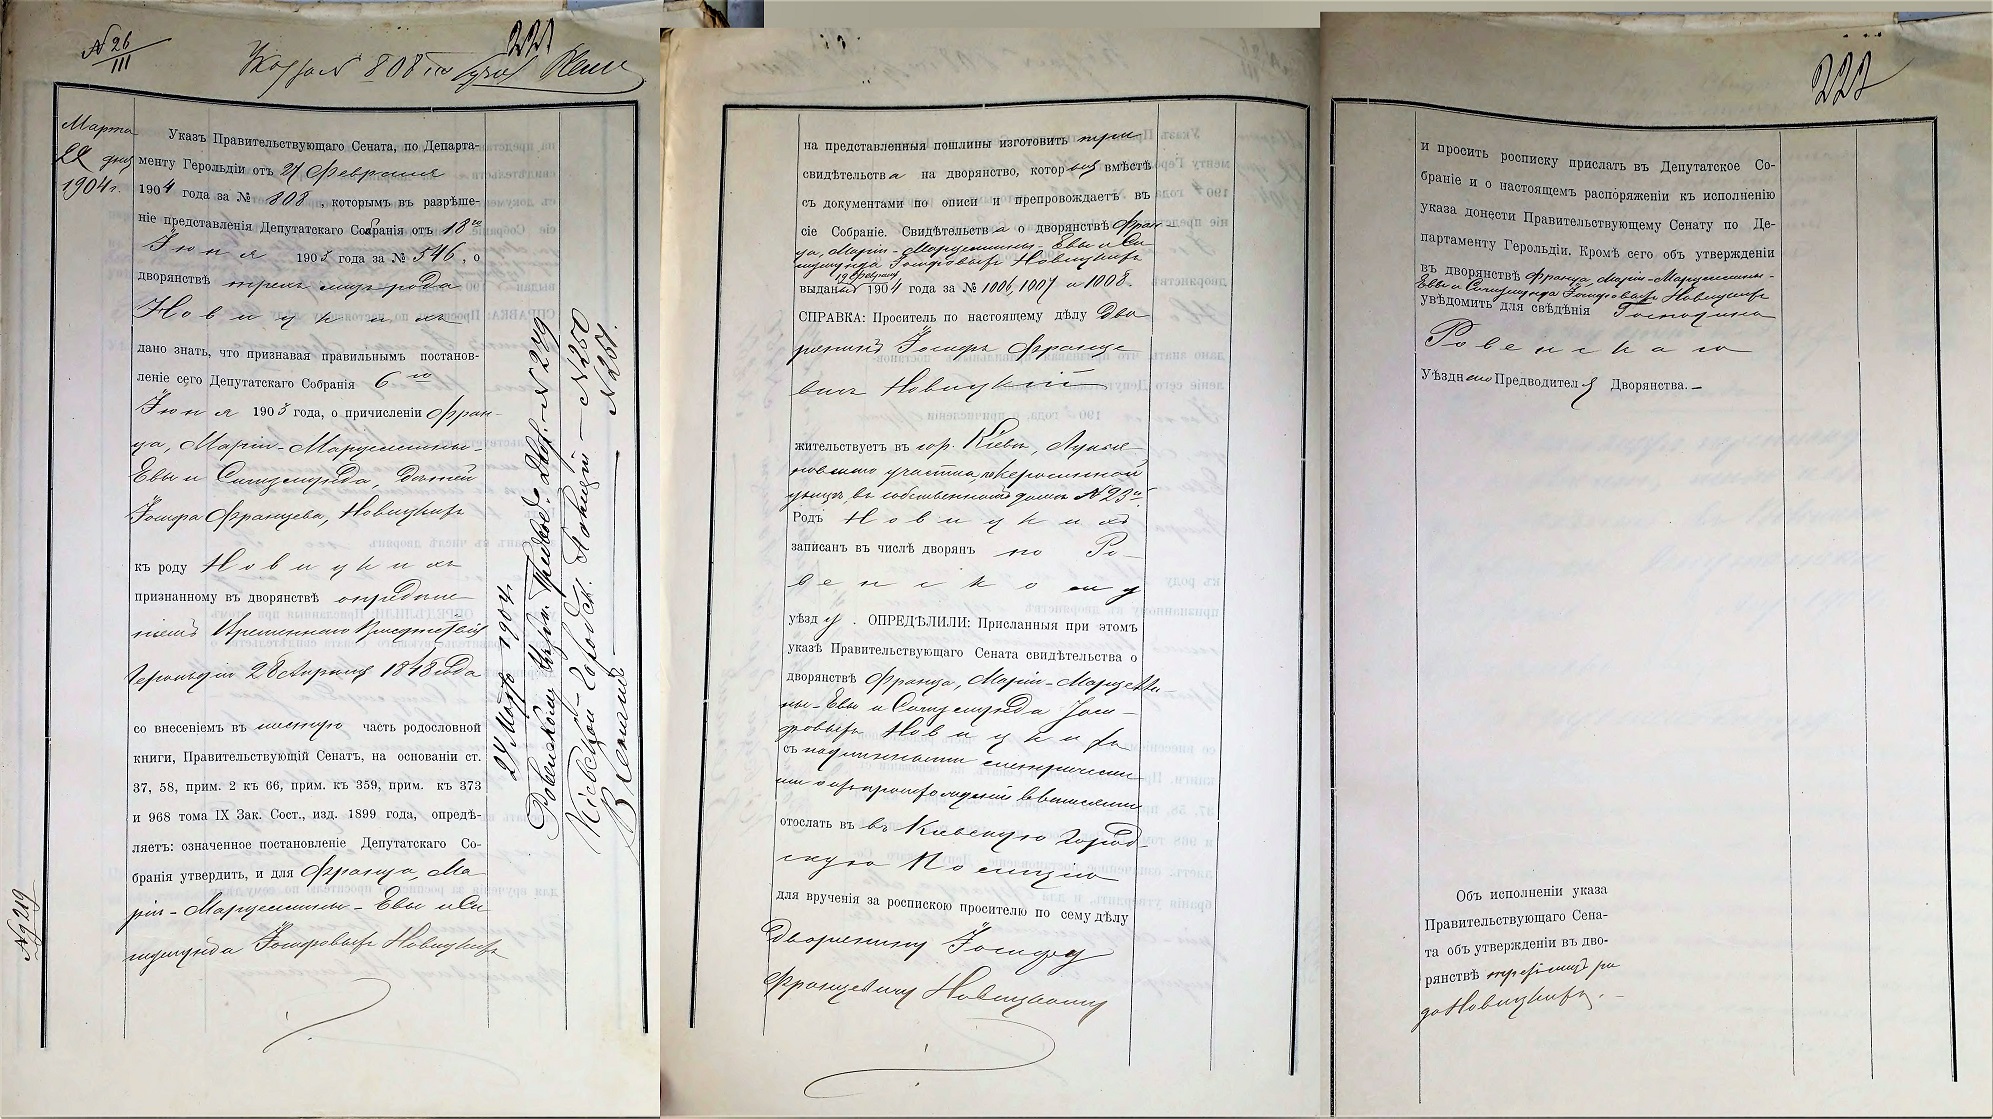 № 26
III
221
Указъ № 808
Марта
22 дня
1904 г.
Указъ Правительствующаго Сената, по Департа-
менту Герольдіи отъ 21 Февраля
1904 года за № 808, которымъ въ разрѣше-
ніе представленія Депутатскаго Собранія отъ 18го
Іюня 1903 года за № 546, о
дворянствѣ трехъ лицъ рода
Новицкихъ
дано знать, что признавая правильнымъ постанов-
леніе сего Депутатскаго Собранія 6го
Іюня 1903 года, о причисленіи Фран-
ца, Маріи-Марцеллины-
Евы и Сигизмунда, дѣтей
Іосифа Францева, Новицкихъ
къ роду Новицкихъ
признанному въ дворянствѣ опредѣле-
ніемъ Временнаго Присутствія
Герольдіи 28 Апрѣля 1848 года
со внесеніемъ въ шестую часть родословной
книги, Правительствующій Сенатъ, на основаніи ст.
37, 58, прим. 2 къ 66, прим. къ 359, прим. къ 373
и 968 тома IX Зак. Сост., изд. 1899 года, опредѣ-
ляетъ: означенное постановленіе Депутатскаго Со-
бранія утвердить, и для Франца, Ма-
ріи-Марцеллины-Евы и Си-
гизмунда Іосифовыхъ Новицкихъ
24 Марта 1904.
Ровенскому Уѣздн. Предвод. Двор. № 249
Кіевской Городск. Полиціи — № 250
№ 251.
№ 219
на представленныя пошлины изготовить три
свидѣтельства на дворянство, которыя вмѣстѣ
съ документами по описи и препровождаетъ въ
сіе Собраніе. Свидѣтельства о дворянствѣ Фран-
ца, Маріи-Марцеллины-Евы и Си-
гизмунда Іосифовыхъ Новицкихъ
19 Февраля
выданы 1904 года за № 1006, 1007 и 1008.
СПРАВКА: Проситель по настоящему дѣлу дво-
рянинъ Іосифъ Францо-
вичъ Новицкій
жительствуетъ въ гор. Кіевѣ, Лукья-
новскаго участка, по Керосинной
улицѣ, въ собственномъ домѣ № 23й
Родъ Новицкихъ
записанъ въ числѣ дворянъ по Ро-
венскому
уѣзду. ОПРЕДѢЛИЛИ: Присланныя при этомъ
указѣ Правительствующаго Сената свидѣтельства о
дворянствѣ Франца, Маріи-Марцелли-
ны-Евы и Сигизмунда Іоси-
фовыхъ Новицкихъ
съ подлинными метрическими
отослать въ въ Кіевскую Город-
скую Полицію
для врученія за роспискою просителю по сему дѣлу
дворянину Іосифу
Францевичу Новицкому
222
и просить росписку прислать въ Депутатское Со-
браніе и о настоящемъ распоряженіи къ исполненію
указа донести Правительствующему Сенату по Де-
партаменту Герольдіи. Кромѣ сего объ утвержденіи
въ дворянствѣ Франца, Маріи-Марцеллины-
Евы и Сигизмунда Іосифовыхъ Новицкихъ
увѣдомить для свѣдѣнія Господина
Ровенскаго
Уѣзднаго Предводителя Дворянства.
Объ исполненіи указа
Правительствующаго Сена-
та объ утвержденіи въ дво-
рянствѣ трехъ лицъ ро-
да Новицкихъ.